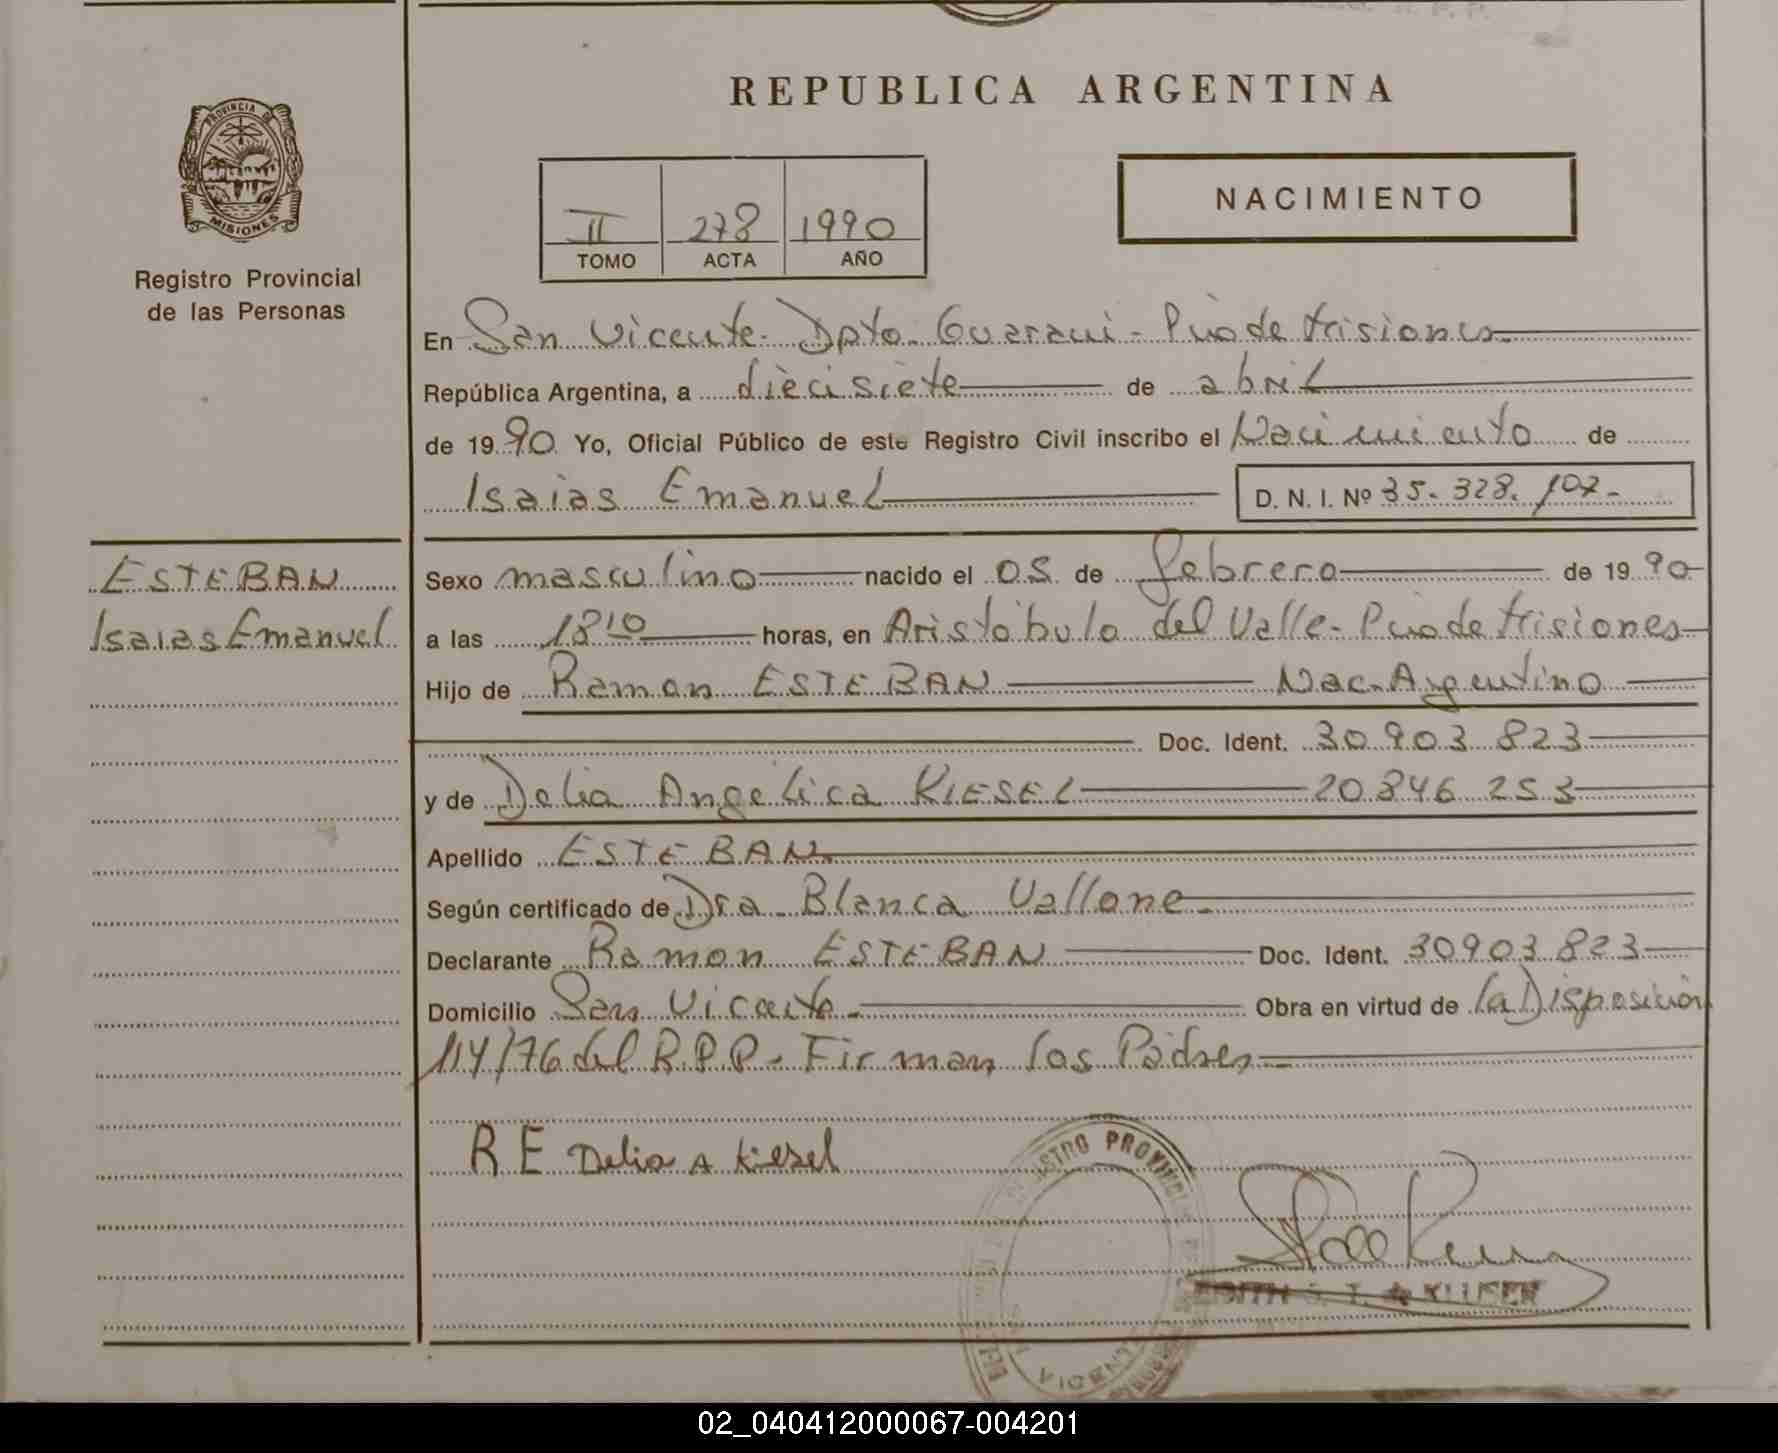 REPUBLICA ARGENTINA
PROVINCIA DE
MISIONES
Registro Provincial
de las Personas
II 278 1990
TOMO ACTA AÑO
NACIMIENTO
En San Vicente - Dpto. Guarani - Pcia de Misiones
República Argentina, a diecisiete de abril
de 1990 Yo, Oficial Público de este Registro Civil inscribo el Nacimiento de
Isaias Emanuel D. N. I. Nº 35. 328. 107-
ESTEBAN
Isaias Emanuel
Sexo masculino nacido el 05 de febrero de 1990
a las 18 10 horas, en Aristóbulo del Valle - Pcia de Misiones
Hijo de Ramon ESTEBAN Nac. Argentino
Doc. Ident. 30 903 823
y de Delia Angelica KIESEL 20 846 253
Apellido ESTEBAN
Según certificado de Dra. Blanca Vallone
Declarante Ramon ESTEBAN Doc. Ident. 30903 823
Domicilio San Vicente - Obra en virtud de la Disposición
114/76 del R.P.P - Firman los Padres
R E Delia A Kiesel
REGISTRO PROVINCIAL
VICENTE
EDITH S. T. de KLUSEN
02_040412000067-004201